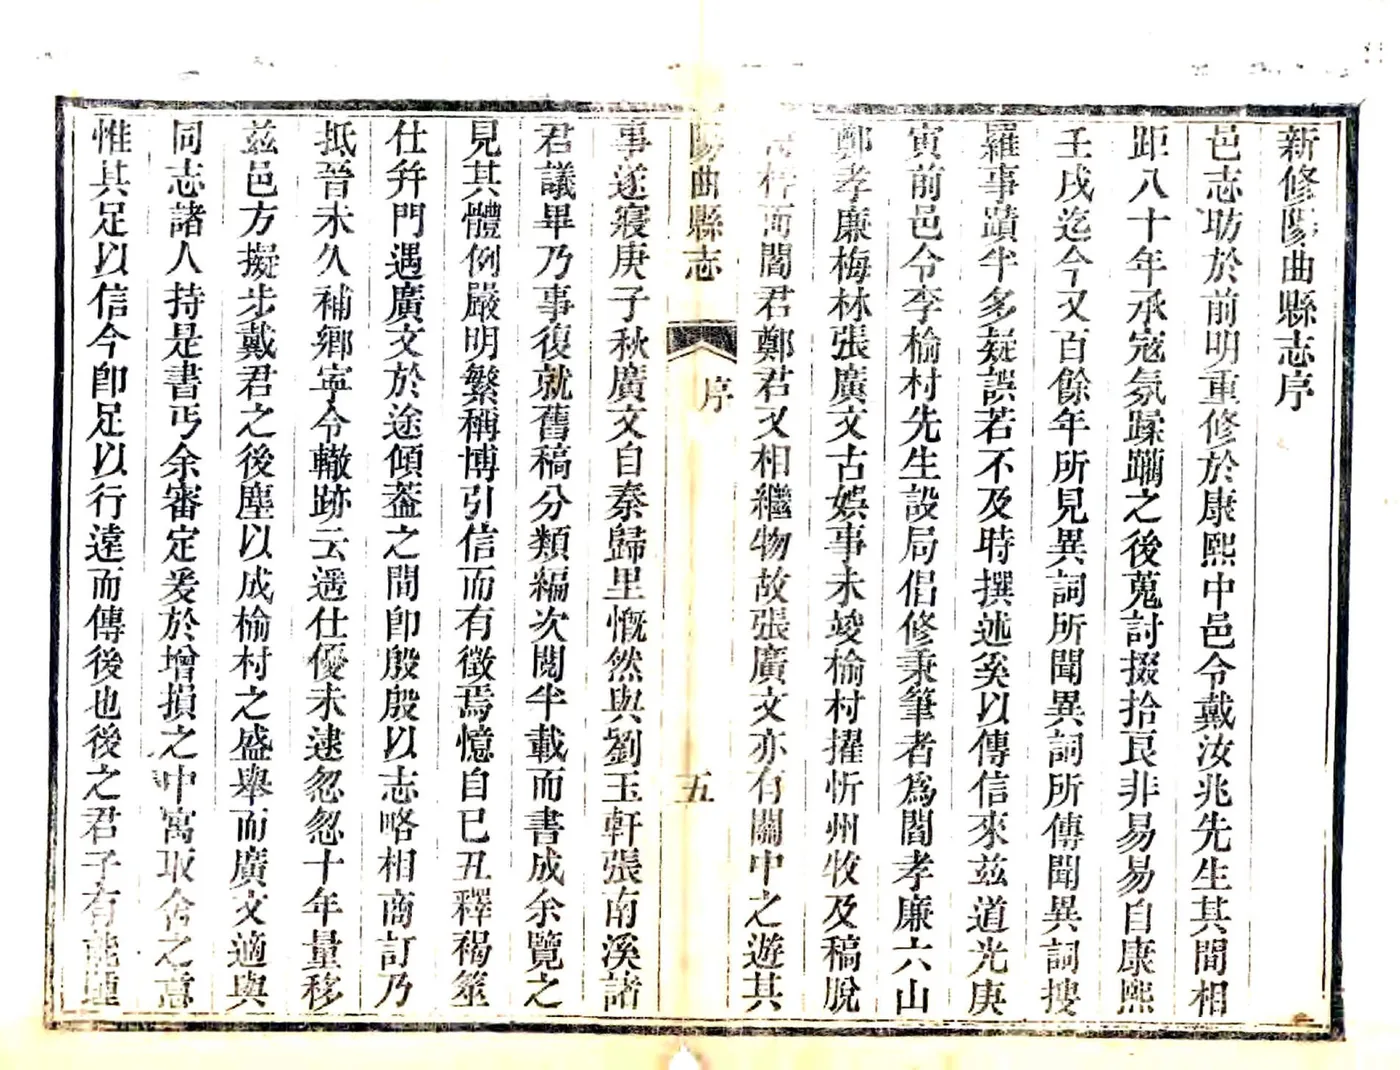 新修陽曲縣志序
邑志昉於前明重修於康熙中邑令戴汝兆先生其間相
距八十年承寇氛蹂躪之後蒐討掇拾良非易易自康熙
壬戌迄今又百餘年所見異詞所聞異詞所傳聞異詞搜
羅事蹟半多疑誤若不及時撰述奚以傳信來茲道光庚
寅前邑令李榆村先生設局倡修秉筆者爲閻孝廉六山
鄭孝廉梅林張廣文古娛事未竣榆村擢忻州牧及稿脫
而閻君鄭君又相繼物故張廣文亦有關中之遊其
陽曲縣志
序
五
事遂寢庚子秋廣文自秦歸里慨然與劉玉軒張南溪諸
君議畢乃事復就舊稿分類編次閱半載而書成余覽之
見其體例嚴明繁稱博引信而有徵焉憶自巳丑釋褐筮
仕幷門遇廣文於途傾葢之間卽殷殷以志略相商訂乃
抵晉未久補鄉寧令轍跡云遙仕優未逮忽忽十年量移
茲邑方擬步戴君之後塵以成榆村之盛舉而廣文適與
同志諸人持是書丐余審定爰於增損之中寓取舍之意
惟其足以信今卽足以行遠而傳後也後之君子有能踵